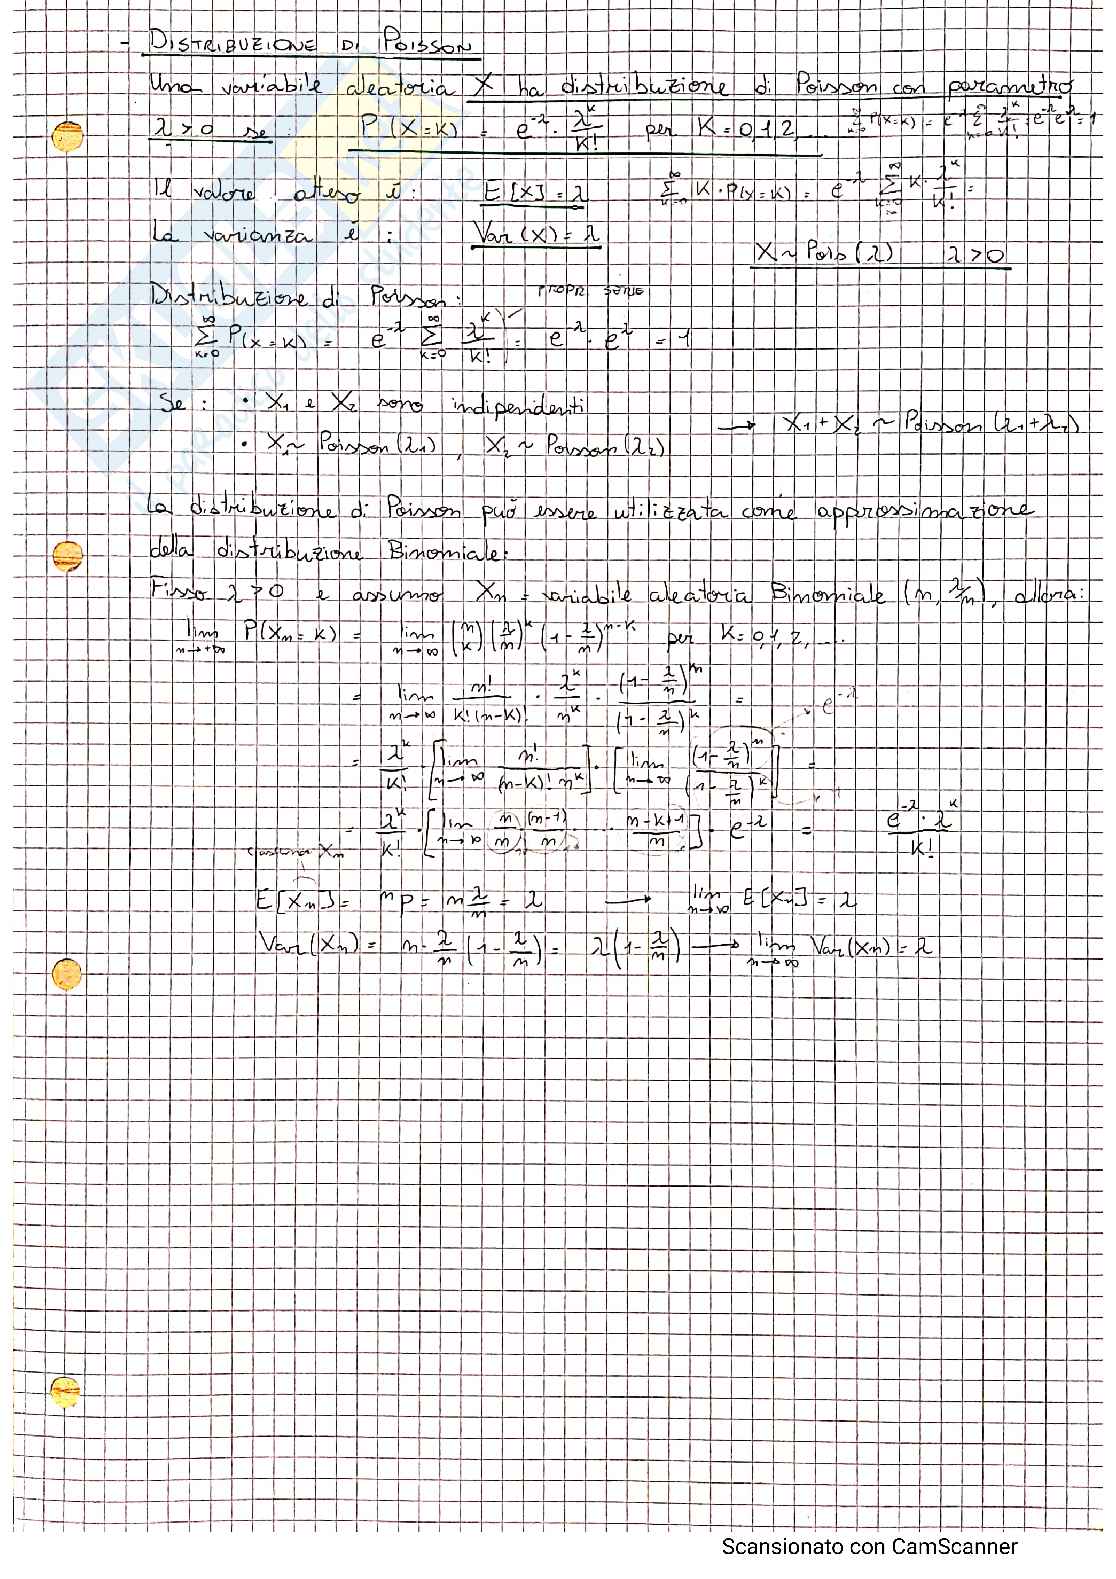 - DISTRIBUZIONE DI POISSON
Una variabile aleatoria X ha distribuzione di Poisson con parametro
λ > 0 se : P(X=K) = e^-λ · λ^k/K! per K = 0,1,2,... ∑_{k=0}^∞ P(X=K) = e^-λ ∑_{k=0}^∞ λ^k/K! = e^-λ e^λ = 1
Il valore atteso è : E[X] = λ ∑_{k=0}^∞ K · P(X=K) = e^-λ ∑_{k=0}^∞ K · λ^k/K! =
La varianza è : Var(X) = λ
X ~ Pois(λ) λ > 0
Distribuzione di Poisson : PROPR SERIE
∑_{k=0}^∞ P(X=K) = e^-λ ∑_{k=0}^∞ λ^k/K! = e^-λ · e^λ = 1
Se : • X₁ e X₂ sono indipendenti → X₁ + X₂ ~ Poisson(λ₁+λ₂)
• X₁ ~ Poisson(λ₁) , X₂ ~ Poisson(λ₂)
La distribuzione di Poisson può essere utilizzata come approssimazione
della distribuzione Binomiale:
Fisso λ > 0 e assumo Xn = variabile aleatoria Binomiale (n, λ/n), allora:
lim_{n→+∞} P(Xn = K) = lim_{n→∞} (n k) (λ/n)^k (1 - λ/n)^{n-k} per K = 0,1,2,...
= lim_{n→∞} n!/K!(n-K)! · λ^k/n^k · (1 - λ/n)^n/(1 - λ/n)^k = e^-λ
= λ^k/K! · [lim_{n→∞} n!/(n-K)! n^k] · [lim_{n→∞} (1 - λ/n)^n/(1 - λ/n)^k] = 1
= λ^k/K! · [lim_{n→∞} n/n (n-1)/n · ... · n-K+1/n] · e^-λ = e^-λ · λ^k/K!
Xn
E[Xn] = np = n λ/n = λ → lim_{n→∞} E[Xn] = λ
Var(Xn) = n · λ/n (1 - λ/n) = λ(1 - λ/n) → lim_{n→∞} Var(Xn) = λ
Scansionato con CamScanner